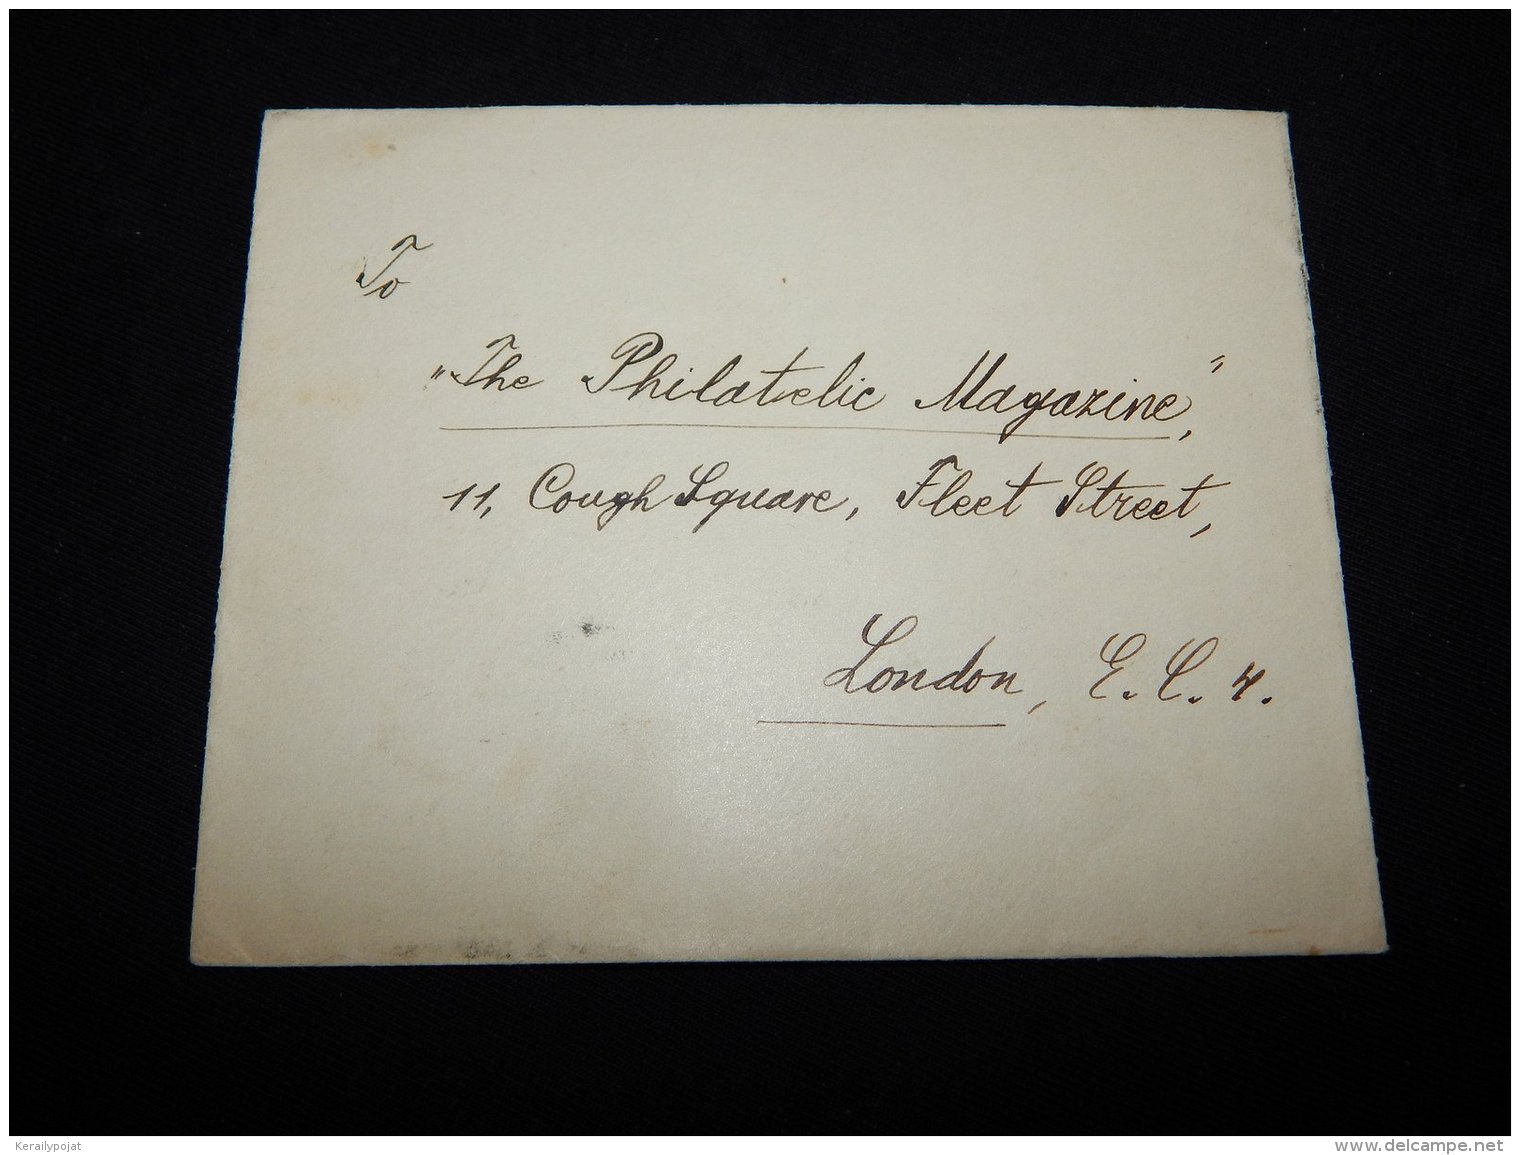 To
"The Philatelic Magazine,"
11, Cough Square, Fleet Street,
London, E.C.4.
Kerailypojat
www.delcampe.net